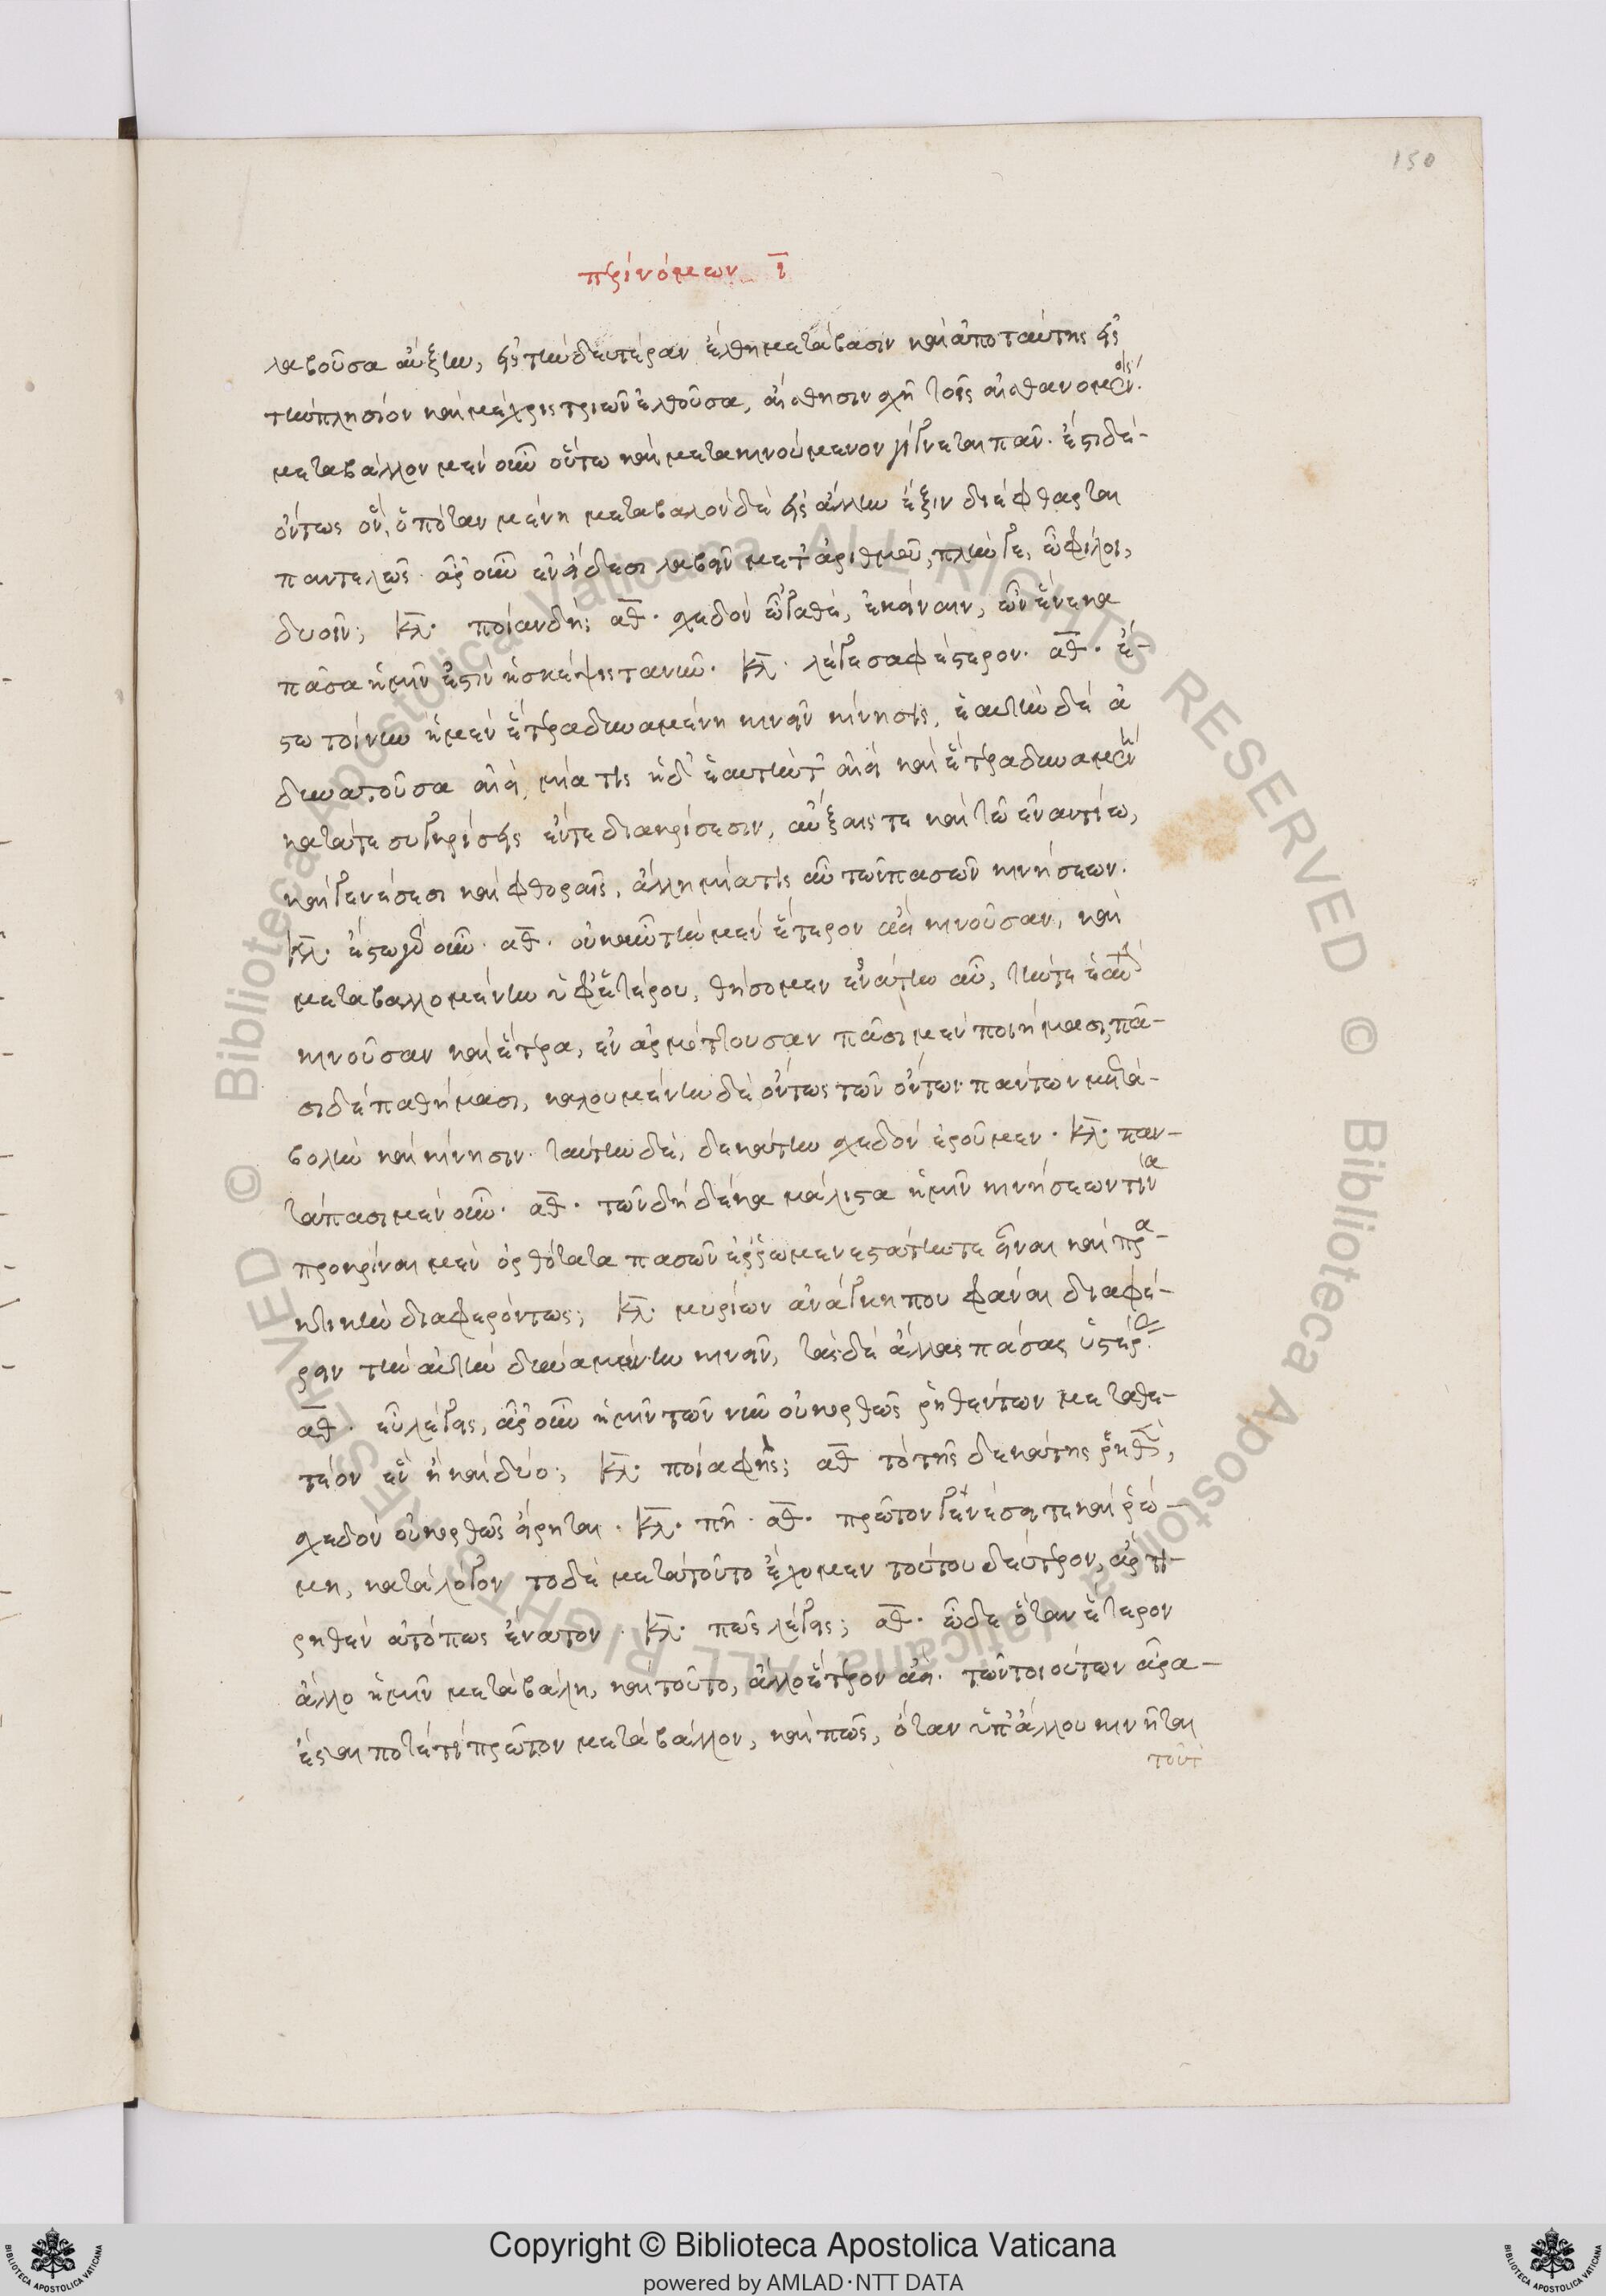 150
περὶ νόμων ῑ
λαβοῦσα αὔξην, εἰς τὴν δευτέραν ἔλθη μετάβασιν καὶ ἀπο ταύτης εἰς
τὴν πλησίον καὶ μέχρις τριῶν ἐλθοῦσα, αἴσθησιν σχῆ τοῖς αἰσθανομένοις.
μεταβάλλον μὲν οὖν οὕτω καὶ μετακινούμενον γίγνεται πᾶν. ἔστι δὲ
ὄντως ὄν, ὁπόταν μένη μεταβαλὸν δὲ εἰς ἄλλην ἕξιν διέφθαρται
παντελῶς. ἆρ' οὖν ἐν εἴδεσι λαβεῖν μετ' ἀριθμοῦ, πλήν γε, ὦ φίλοι,
δυοῖν; κλ. ποίαιν δή; αθ. σχεδὸν ὦ 'γαθὲ, ἐκείναιν, ὧν ἕνεκα
πᾶσα ἡμῖν ἐστὶν ἡ σκέψις τανῦν. κλ. λέγε σαφέστερον. αθ. ἔ-
στω τοίνυν ἡ μὲν ἕτερα δυναμένη κινεῖν κίνησις, ἑαυτὴν δὲ ἀ
δυνατοῦσα αἰεὶ, μία τις ἡ δ' ἑαυτήν τ' αἰεὶ καὶ ἕτερα δυναμένη
κατά τε συγκρίσεις ἔν τε διακρίσεσιν, αὔξαις τε καὶ τῶ ἐναντίω,
καὶ γενέσεσι καὶ φθοραῖς, ἄλλη μία τις αὖ τῶν πασῶν κινήσεων.
κλ. ἔστω γὰρ οὖν. αθ. οὐκοῦν τὴν μὲν ἕτερον ἀεὶ κινοῦσαν, καὶ
μεταβαλλομένην ὑφ' ἑτέρου, θήσομεν ἐνάτην αὖ, τήν τε ἑαυτὴν
κινοῦσαν καὶ ἕτερα, ἐναρμόττουσαν πᾶσι μὲν ποιήμασι, πᾶ-
σι δὲ παθήμασι, καλουμένην δὲ ὄντως τῶν ὄντων πάντων μετα-
βολὴν καὶ κίνησιν. ταύτην δὲ, δεκάτην σχεδὸν ἐροῦμεν. κλ. παν-
τάπασι μὲν οὖν. αθ. τῶν δὴ δέκα μάλιστα ἡμῖν κινήσεων τίνα
προκρίναιμεν ὀρθότατα πασῶν ἐρρωμενεστάτην τε εἶναι καὶ πρα-
κτικὴν διαφερόντως; κλ. μυρίων ἀνάγκη που φάναι διαφέ-
ρειν τὴν αὑτὴν δυναμένην κινεῖν, τὰς δὲ ἄλλας πάσας ὑστέρας.
αθ. εὖ λέγεις, ἆρ' οὖν ἡμῖν τῶν νῦν οὐκ ὀρθῶς ῥηθέντων μεταθε-
τέον ἓν ἢ καὶ δύο; κλ. ποῖα φής; αθ τὸ τῆς δεκάτης ῥηθὲν,
σχεδὸν οὐκ ὀρθῶς εἴρηται. κλ. πῆ. αθ. πρῶτον γενέσει τε καὶ ῥώ-
μη, κατὰ λόγον. το δὲ μετὰ τοῦτο ἔχομεν τούτου δεύτερον, ἄρτι
ῥηθὲν ἀτόπως ἔνατον. κλ. πῶς λέγεις; αθ. ὧδε ὅταν ἕτερον
ἄλλο ἡμῖν μεταβάλη, καὶ τοῦτο, ἄλλο ἕτερον ἀεί. τῶν τοιούτων ἆρα
ἔσται ποτέ τι πρῶτον μεταβάλλον, καὶ πῶς, ὅταν ὑπ' ἄλλου κινῆται
τοῦτ